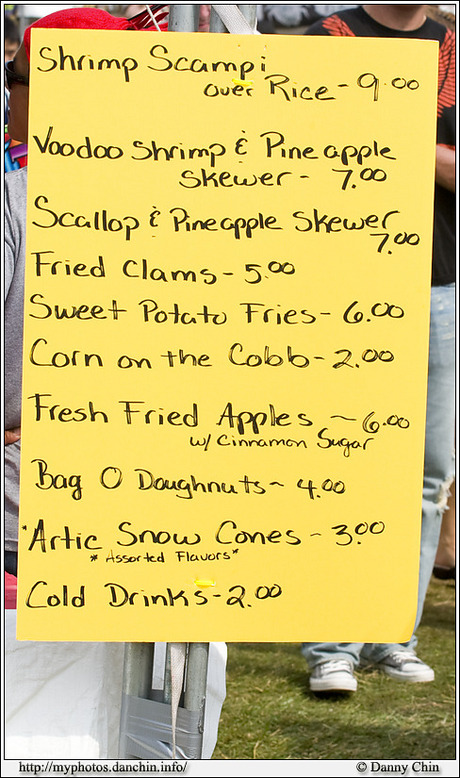 Shrimp Scampi
over Rice - 9.00
Voodoo Shrimp & Pineapple
Skewer - 7.00
Scallop & Pineapple Skewer
7.00
Fried Clams - 5.00
Sweet Potato Fries - 6.00
Corn on the Cobb - 2.00
Fresh Fried Apples ~ 6.00
w/ Cinnamon Sugar
Bag O Doughnuts ~ 4.00
"Artic Snow Cones - 3.00
* Assorted Flavors *
Cold Drinks - 2.00
http://myphotos.danchin.info/
© Danny Chin